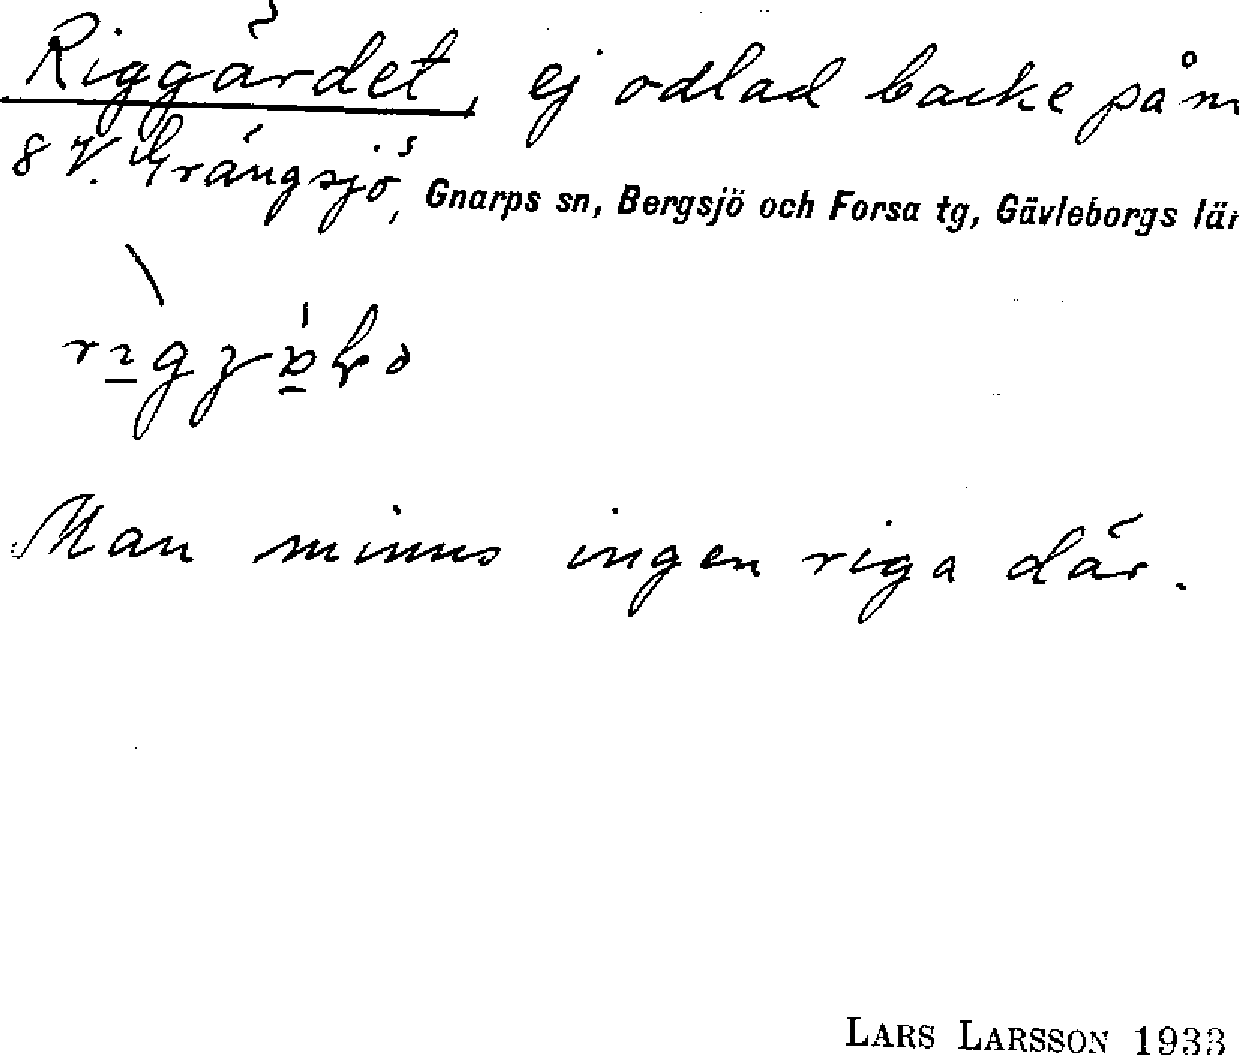 Riggärdet, ej odlad backe på nr
8 V. Grängsjö, Gnarps sn, Bergsjö och Forsa tg, Gävleborgs län
Man minns ingen riga där.
LARS LARSSON 1933